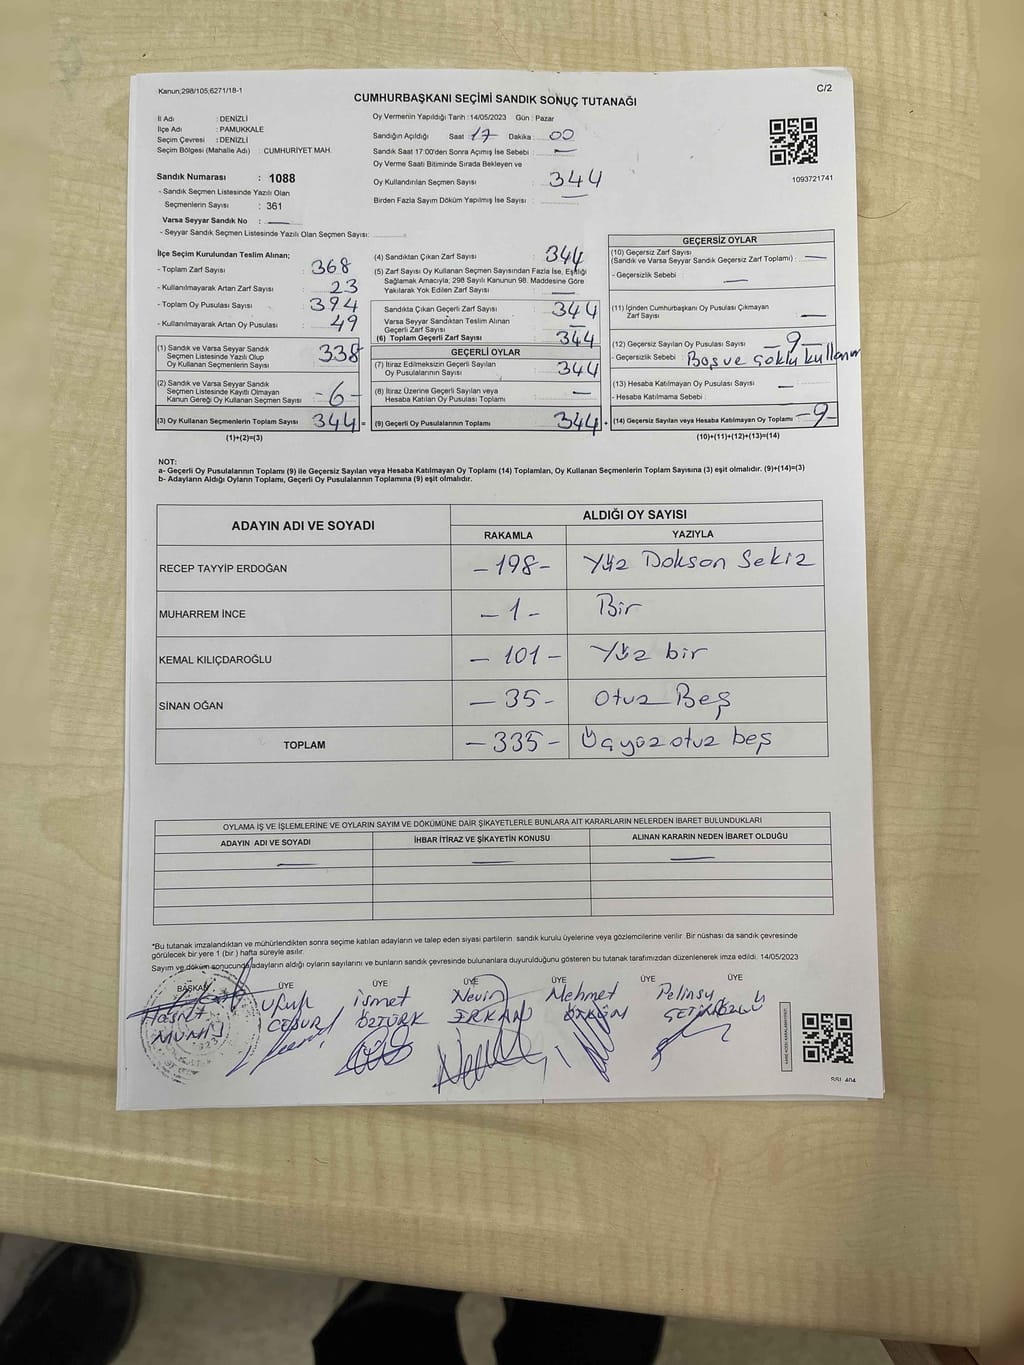 Kanun;298/105;6271/18-1
C/2
CUMHURBAŞKANI SEÇİMİ SANDIK SONUÇ TUTANAĞI
İl Adı : DENİZLİ
İlçe Adı : PAMUKKALE
Seçim Çevresi : DENİZLİ
Seçim Bölgesi (Mahalle Adı) : CUMHURİYET MAH.
Sandık Numarası : 1088
- Sandık Seçmen Listesinde Yazılı Olan
Seçmenlerin Sayısı : 361
Varsa Seyyar Sandık No : —
- Seyyar Sandık Seçmen Listesinde Yazılı Olan Seçmen Sayısı:
Oy Vermenin Yapıldığı Tarih : 14/05/2023 Gün : Pazar
Sandığın Açıldığı Saat 17 Dakika : 00
Sandık Saat 17:00'den Sonra Açımış İse Sebebi : —
Oy Verme Saati Bitiminde Sırada Bekleyen ve
Oy Kullandırılan Seçmen Sayısı : 344
Birden Fazla Sayım Döküm Yapılmış İse Sayısı : —
1093721741
İlçe Seçim Kurulundan Teslim Alınan;
- Toplam Zarf Sayısı : 368
- Kullanılmayarak Artan Zarf Sayısı : 23
- Toplam Oy Pusulası Sayısı : 394
- Kullanılmayarak Artan Oy Pusulası : 49
(1) Sandık ve Varsa Seyyar Sandık
Seçmen Listesinde Yazılı Olup
Oy Kullanan Seçmenlerin Sayısı : 338
(2) Sandık ve Varsa Seyyar Sandık
Seçmen Listesinde Kayıtlı Olmayan
Kanun Gereği Oy Kullanan Seçmen Sayısı : -6-
(3) Oy Kullanan Seçmenlerin Toplam Sayısı : 344 =
(1)+(2)=(3)
(4) Sandıktan Çıkan Zarf Sayısı : 344
(5) Zarf Sayısı Oy Kullanan Seçmen Sayısından Fazla İse, Eşitliği
Sağlamak Amacıyla; 298 Sayılı Kanunun 98. Maddesine Göre
Yakılarak Yok Edilen Zarf Sayısı : —
Sandıkta Çıkan Geçerli Zarf Sayısı : 344
Varsa Seyyar Sandıktan Teslim Alınan
Geçerli Zarf Sayısı : —
(6) Toplam Geçerli Zarf Sayısı : 344
GEÇERLİ OYLAR
(7) İtiraz Edilmeksizin Geçerli Sayılan
Oy Pusulalarının Sayısı : 344
(8) İtiraz Üzerine Geçerli Sayılan veya
Hesaba Katılan Oy Pusulası Toplamı : —
(9) Geçerli Oy Pusulalarının Toplamı : 344 +
GEÇERSİZ OYLAR
(10) Geçersiz Zarf Sayısı
(Sandık ve Varsa Seyyar Sandık Geçersiz Zarf Toplamı) : —
- Geçersizlik Sebebi : —
(11) İçinden Cumhurbaşkanı Oy Pusulası Çıkmayan
Zarf Sayısı : —
(12) Geçersiz Sayılan Oy Pusulası Sayısı : -9-
- Geçersizlik Sebebi : Boş ve çoklu kullanım
(13) Hesaba Katılmayan Oy Pusulası Sayısı : —
- Hesaba Katılmama Sebebi :
(14) Geçersiz Sayılan veya Hesaba Katılmayan Oy Toplamı : -9-
(10)+(11)+(12)+(13)=(14)
NOT:
a- Geçerli Oy Pusulalarının Toplamı (9) ile Geçersiz Sayılan veya Hesaba Katılmayan Oy Toplamı (14) Toplamları, Oy Kullanan Seçmenlerin Toplam Sayısına (3) eşit olmalıdır. (9)+(14)=(3)
b- Adayların Aldığı Oyların Toplamı, Geçerli Oy Pusulalarının Toplamına (9) eşit olmalıdır.
ADAYIN ADI VE SOYADI
ALDIĞI OY SAYISI
RAKAMLA YAZIYLA
RECEP TAYYİP ERDOĞAN -198- Yüz Dokson Sekiz
MUHARREM İNCE -1- Bir
KEMAL KILIÇDAROĞLU -101- Yüz bir
SİNAN OĞAN -35- Otuz Beş
TOPLAM -335- Üçyüz otuz beş
OYLAMA İŞ VE İŞLEMLERİNE VE OYLARIN SAYIM VE DÖKÜMÜNE DAİR ŞİKAYETLERLE BUNLARA AİT KARARLARIN NELERDEN İBARET BULUNDUKLARI
ADAYIN ADI VE SOYADI İHBAR İTİRAZ VE ŞİKAYETİN KONUSU ALINAN KARARIN NEDEN İBARET OLDUĞU
— — —
*Bu tutanak imzalandıktan ve mühürlendikten sonra seçime katılan adayların ve talep eden siyasi partilerin sandık kurulu üyelerine veya gözlemcilerine verilir. Bir nüshası da sandık çevresinde
görülecek bir yere 1 (bir) hafta süreyle asılır.
Sayım ve döküm sonucunda adayların aldığı oyların sayılarını ve bunların sandık çevresinde bulunanlara duyurulduğunu gösteren bu tutanak tarafımızdan düzenlenerek imza edildi. 14/05/2023
BAŞKAN ÜYE ÜYE ÜYE ÜYE ÜYE ÜYE
Ufuk İsmet Nevin Mehmet Pelinsu
CESUR ÖZTÜRK ERKAN